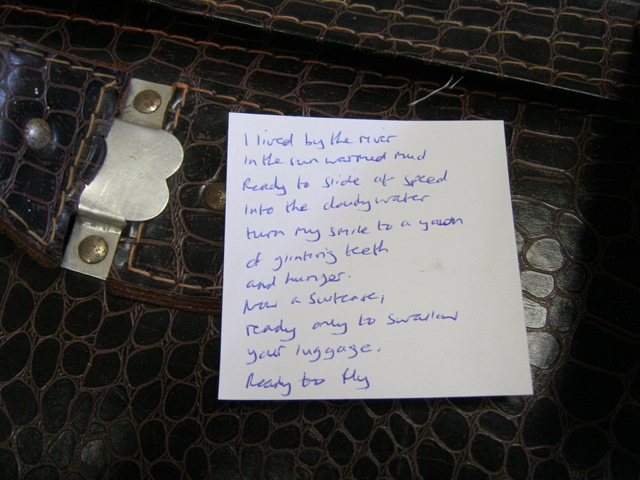 I lived by the river
in the sun warmed mud
Ready to slide at speed
Into the cloudy water
turn my smile to a yawn
of glinting teeth
and hunger.
Now a suitcase,
ready only to swallow
your luggage.
Ready to fly